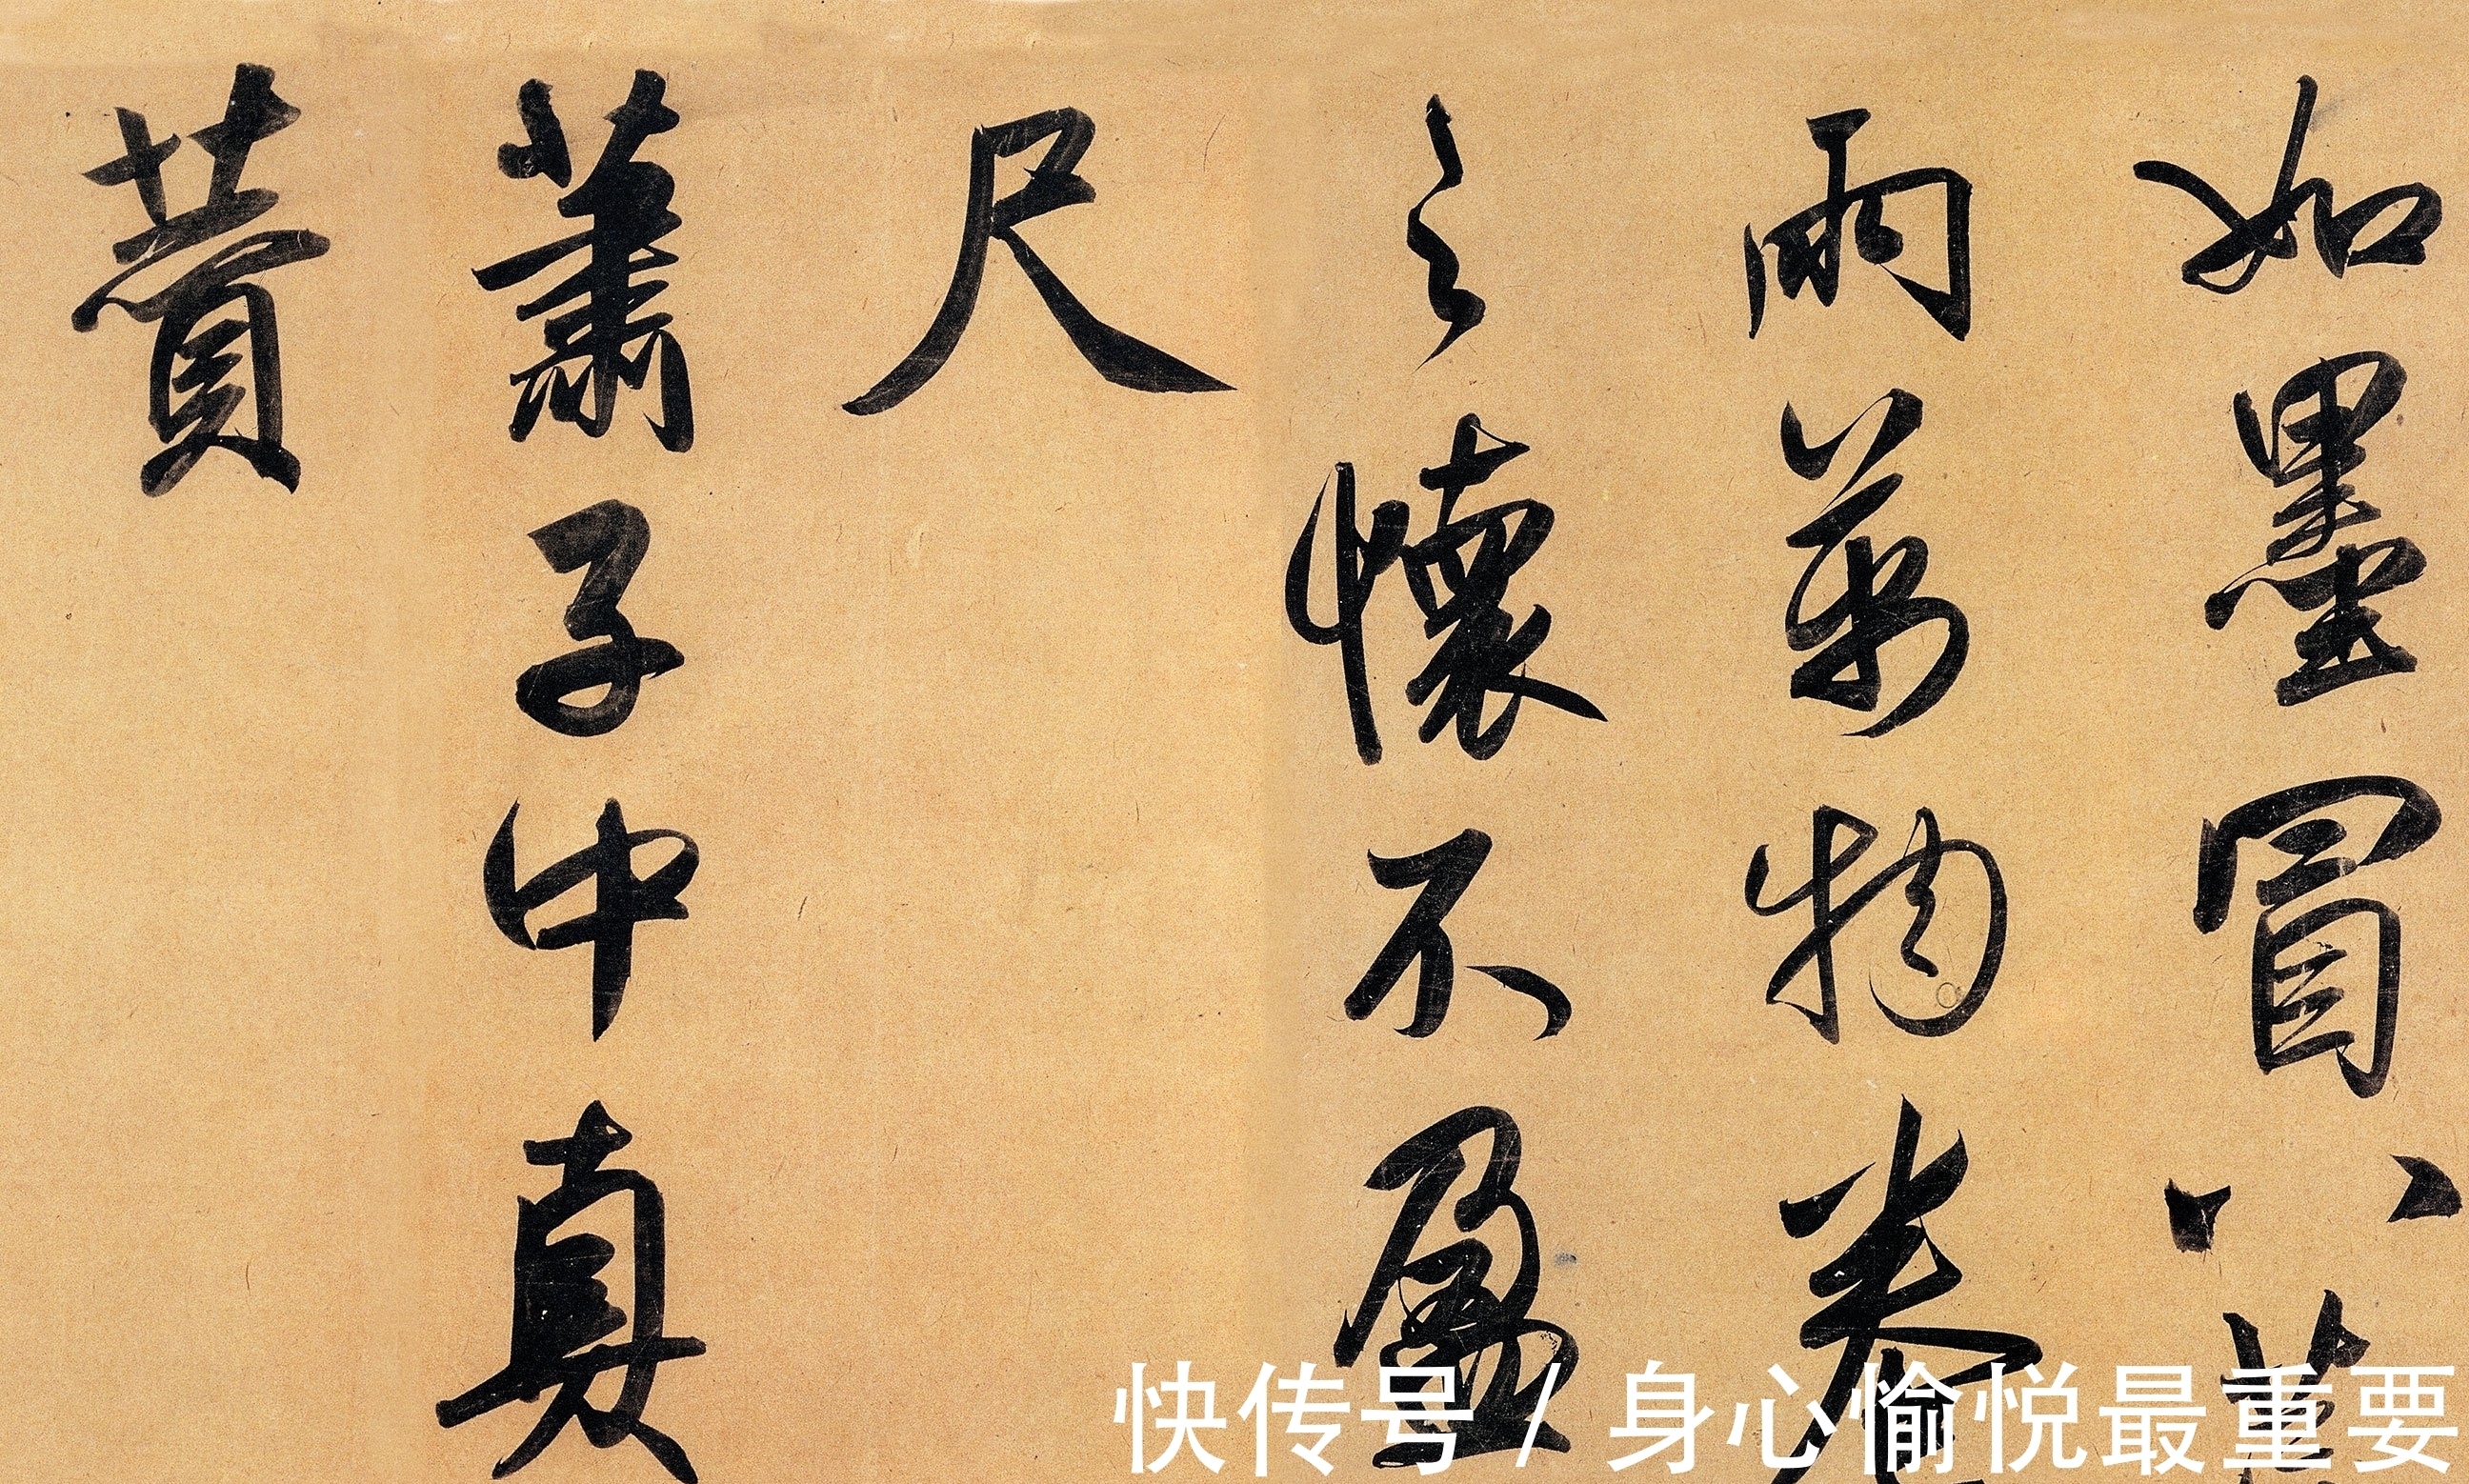 如墨冒八
雨萬物
之懷不盈
尺
蕭子中真
賛
快传号 / 身心愉悦最重要